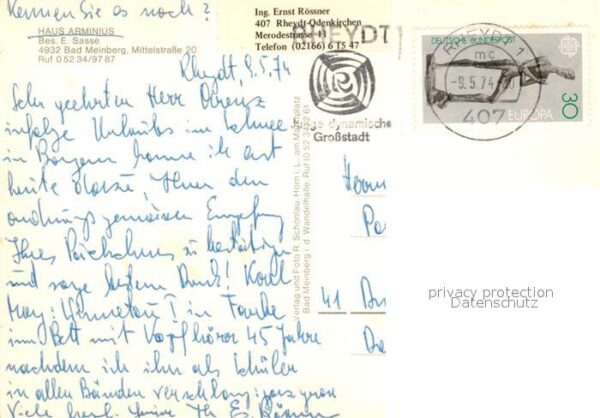 Kennen Sie es noch?
HAUS ARMINIUS
Bes. E. Sasse
4932 Bad Meinberg, Mittelstraße 20
Ruf 0 52 34/97 87
Ing. Ernst Rössner
407 Rheydt-Odenkirchen
Merodestraße
Telefon (02166) 6 15 47
RHEYDT
dynamische
Großstadt
-9.5.74
mc
407
DEUTSCHE BUNDESPOST
EUROPA
30
Rheydt, 9.5.74
Sehr geehrter Herr
infolge Urlaubs im
in Bayern komme ich erst
heute dazu, Ihnen den
ordnungsgemässen Empfang
Ihres Päckchens zu bestätigen
und sage besten Dank! Karl
May: Winnetou I in Farbe
im Bett mit Kopfhörer 45 Jahre
nachdem ich ihn als Schüler
in allen Bänden verschlang:
Viele herzl. Th. E. Rössner
Verlag und Foto R. Schönlau, Horn i. L., am Marktplatz
Bad Meinberg i. d. Wandelhalle, Ruf (0 52 34)
41
privacy protection
Datenschutz